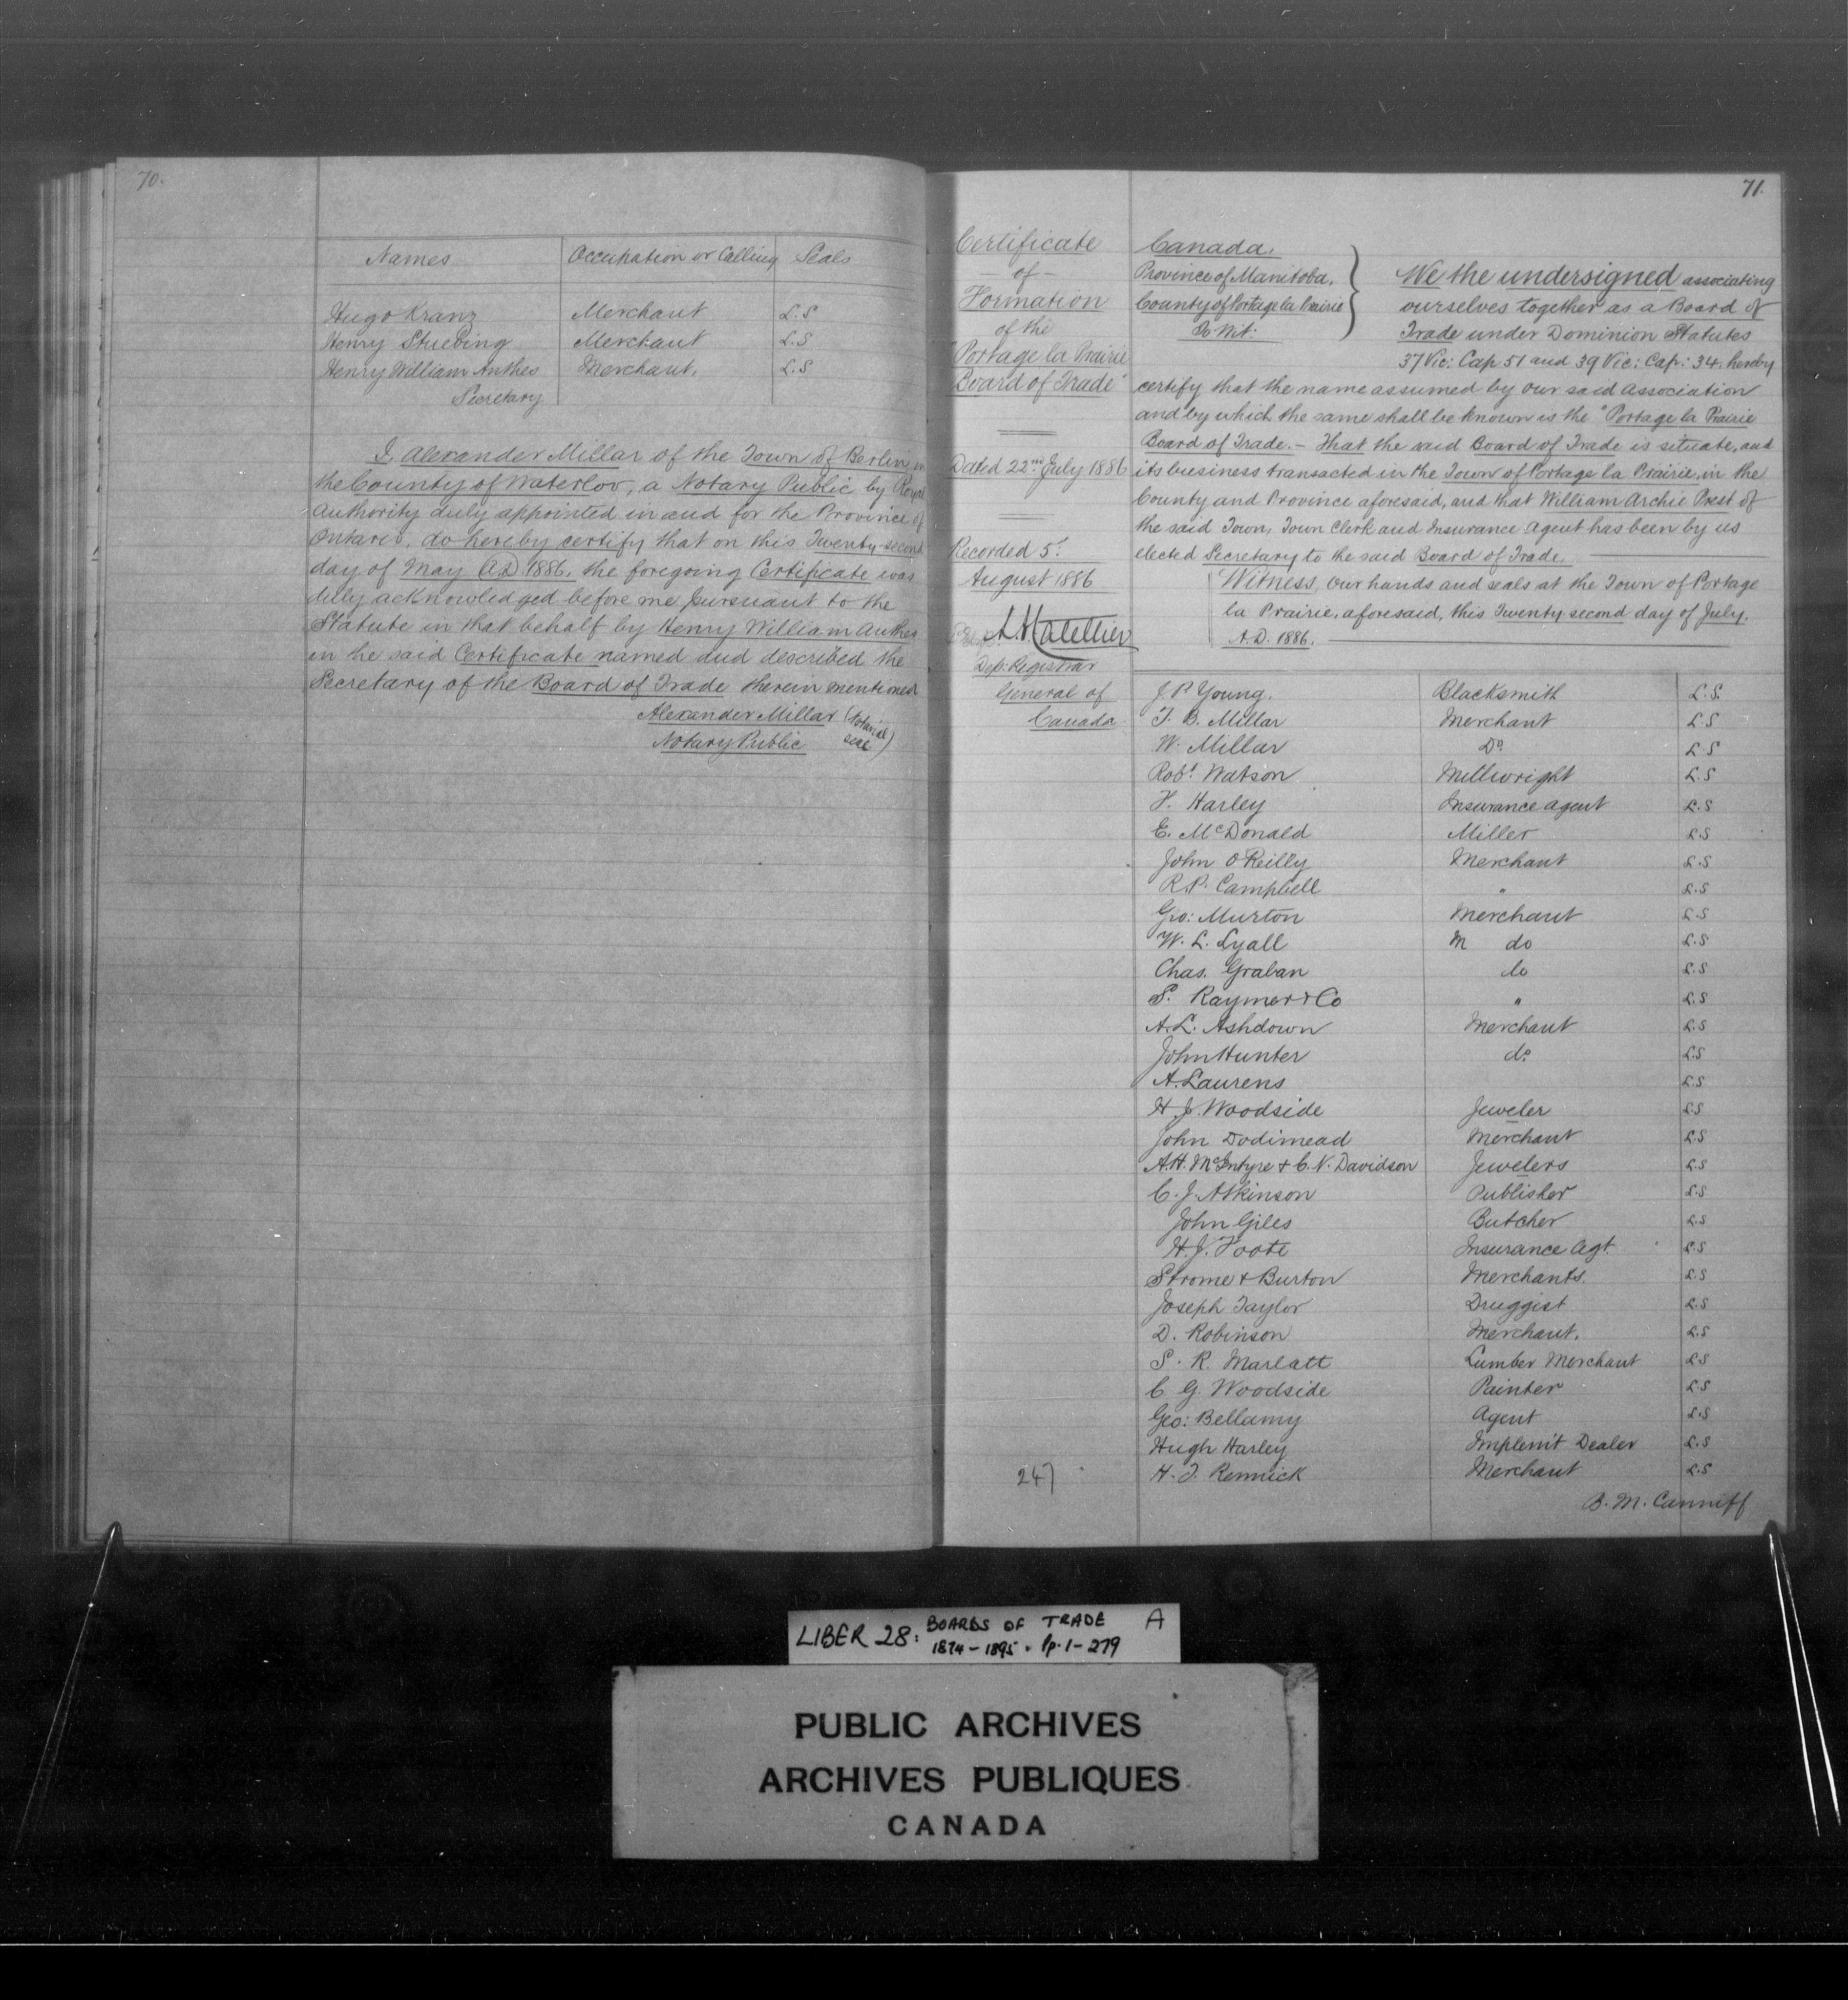 70.
Names Occupation or Calling Seals
Hugo Kranz Merchant L.S
Henry Stuebing Merchant L.S
Henry William Anthes Merchant. L.S
Secretary
I, Alexander Millar of the Town of Berlin in
the County of Waterloo, a Notary Public by Royal
Authority duly appointed in and for the Province of
Ontario, do hereby certify that on this Twenty-second
day of May A.D. 1886. the foregoing Certificate was
duly acknowledged before me pursuant to the
Statute in that behalf by Henry William Anthes
in the said Certificate named and described the
Secretary of the Board of Trade therein mentioned
Alexander Millar (Notarial
Notary Public seal)
71.
Certificate
- of -
Formation
of the
"Portage la Prairie
Board of Trade"
Dated 22nd July 1886
Recorded 5t
August 1886
Dep: Registrar
General of
Canada
247
Canada.
Province of Manitoba.
County of Portage la Prairie
To Wit:
We the undersigned associating
ourselves together as a Board of
Trade under Dominion Statutes
37 Vic: Cap 51 and 39 Vic: Cap: 34. hereby
certify that the name assumed by our said Association
and by which the same shall be known is the "Portage la Prairie
Board of Trade. - That the said Board of Trade is situate, and
its business transacted in the Town of Portage la Prairie, in the
County and Province aforesaid, and that William Archie Prest of
the said Town, Town Clerk and Insurance Agent has been by us
elected Secretary to the said Board of Trade.
Witness, our hands and seals at the Town of Portage
la Prairie, aforesaid, this Twenty second day of July.
A.D. 1886.
J. P. Young. Blacksmith L.S.
T. B. Millar Merchant L.S
W. Millar Do L.S
Robt. Watson Millwright L.S
F. Harley Insurance agent L.S
E. McDonald Miller L.S
John O'Reilly Merchant L.S
R.P. Campbell " L.S
Geo: Murton Merchant L.S
W. L. Lyall M do L.S
Chas. Graban do L.S
S. Raymer & Co " L.S
A.L. Ashdown Merchant L.S
John Hunter do L.S
A. Laurens L.S
H. J. Woodside Jeweler L.S
John Dodimead Merchant L.S
A.H. McIntyre & C. N. Davidson Jewelers L.S
C. J. Atkinson Publisher L.S
John Giles Butcher L.S
H. J. Foote Insurance Agt. L.S
Strome & Burton Merchants. L.S
Joseph Taylor Druggist L.S
D. Robinson Merchant. L.S
S. R. Marlatt Lumber Merchant L.S
C. G. Woodside Painter L.S
Geo: Bellamy Agent L.S
Hugh Harley Implem't Dealer L.S
H. J. Rennick Merchant L.S
B. M. Canniff
LIBER 28: BOARDS OF TRADE A
1874-1895. Pp. 1-279
PUBLIC ARCHIVES
ARCHIVES PUBLIQUES
CANADA